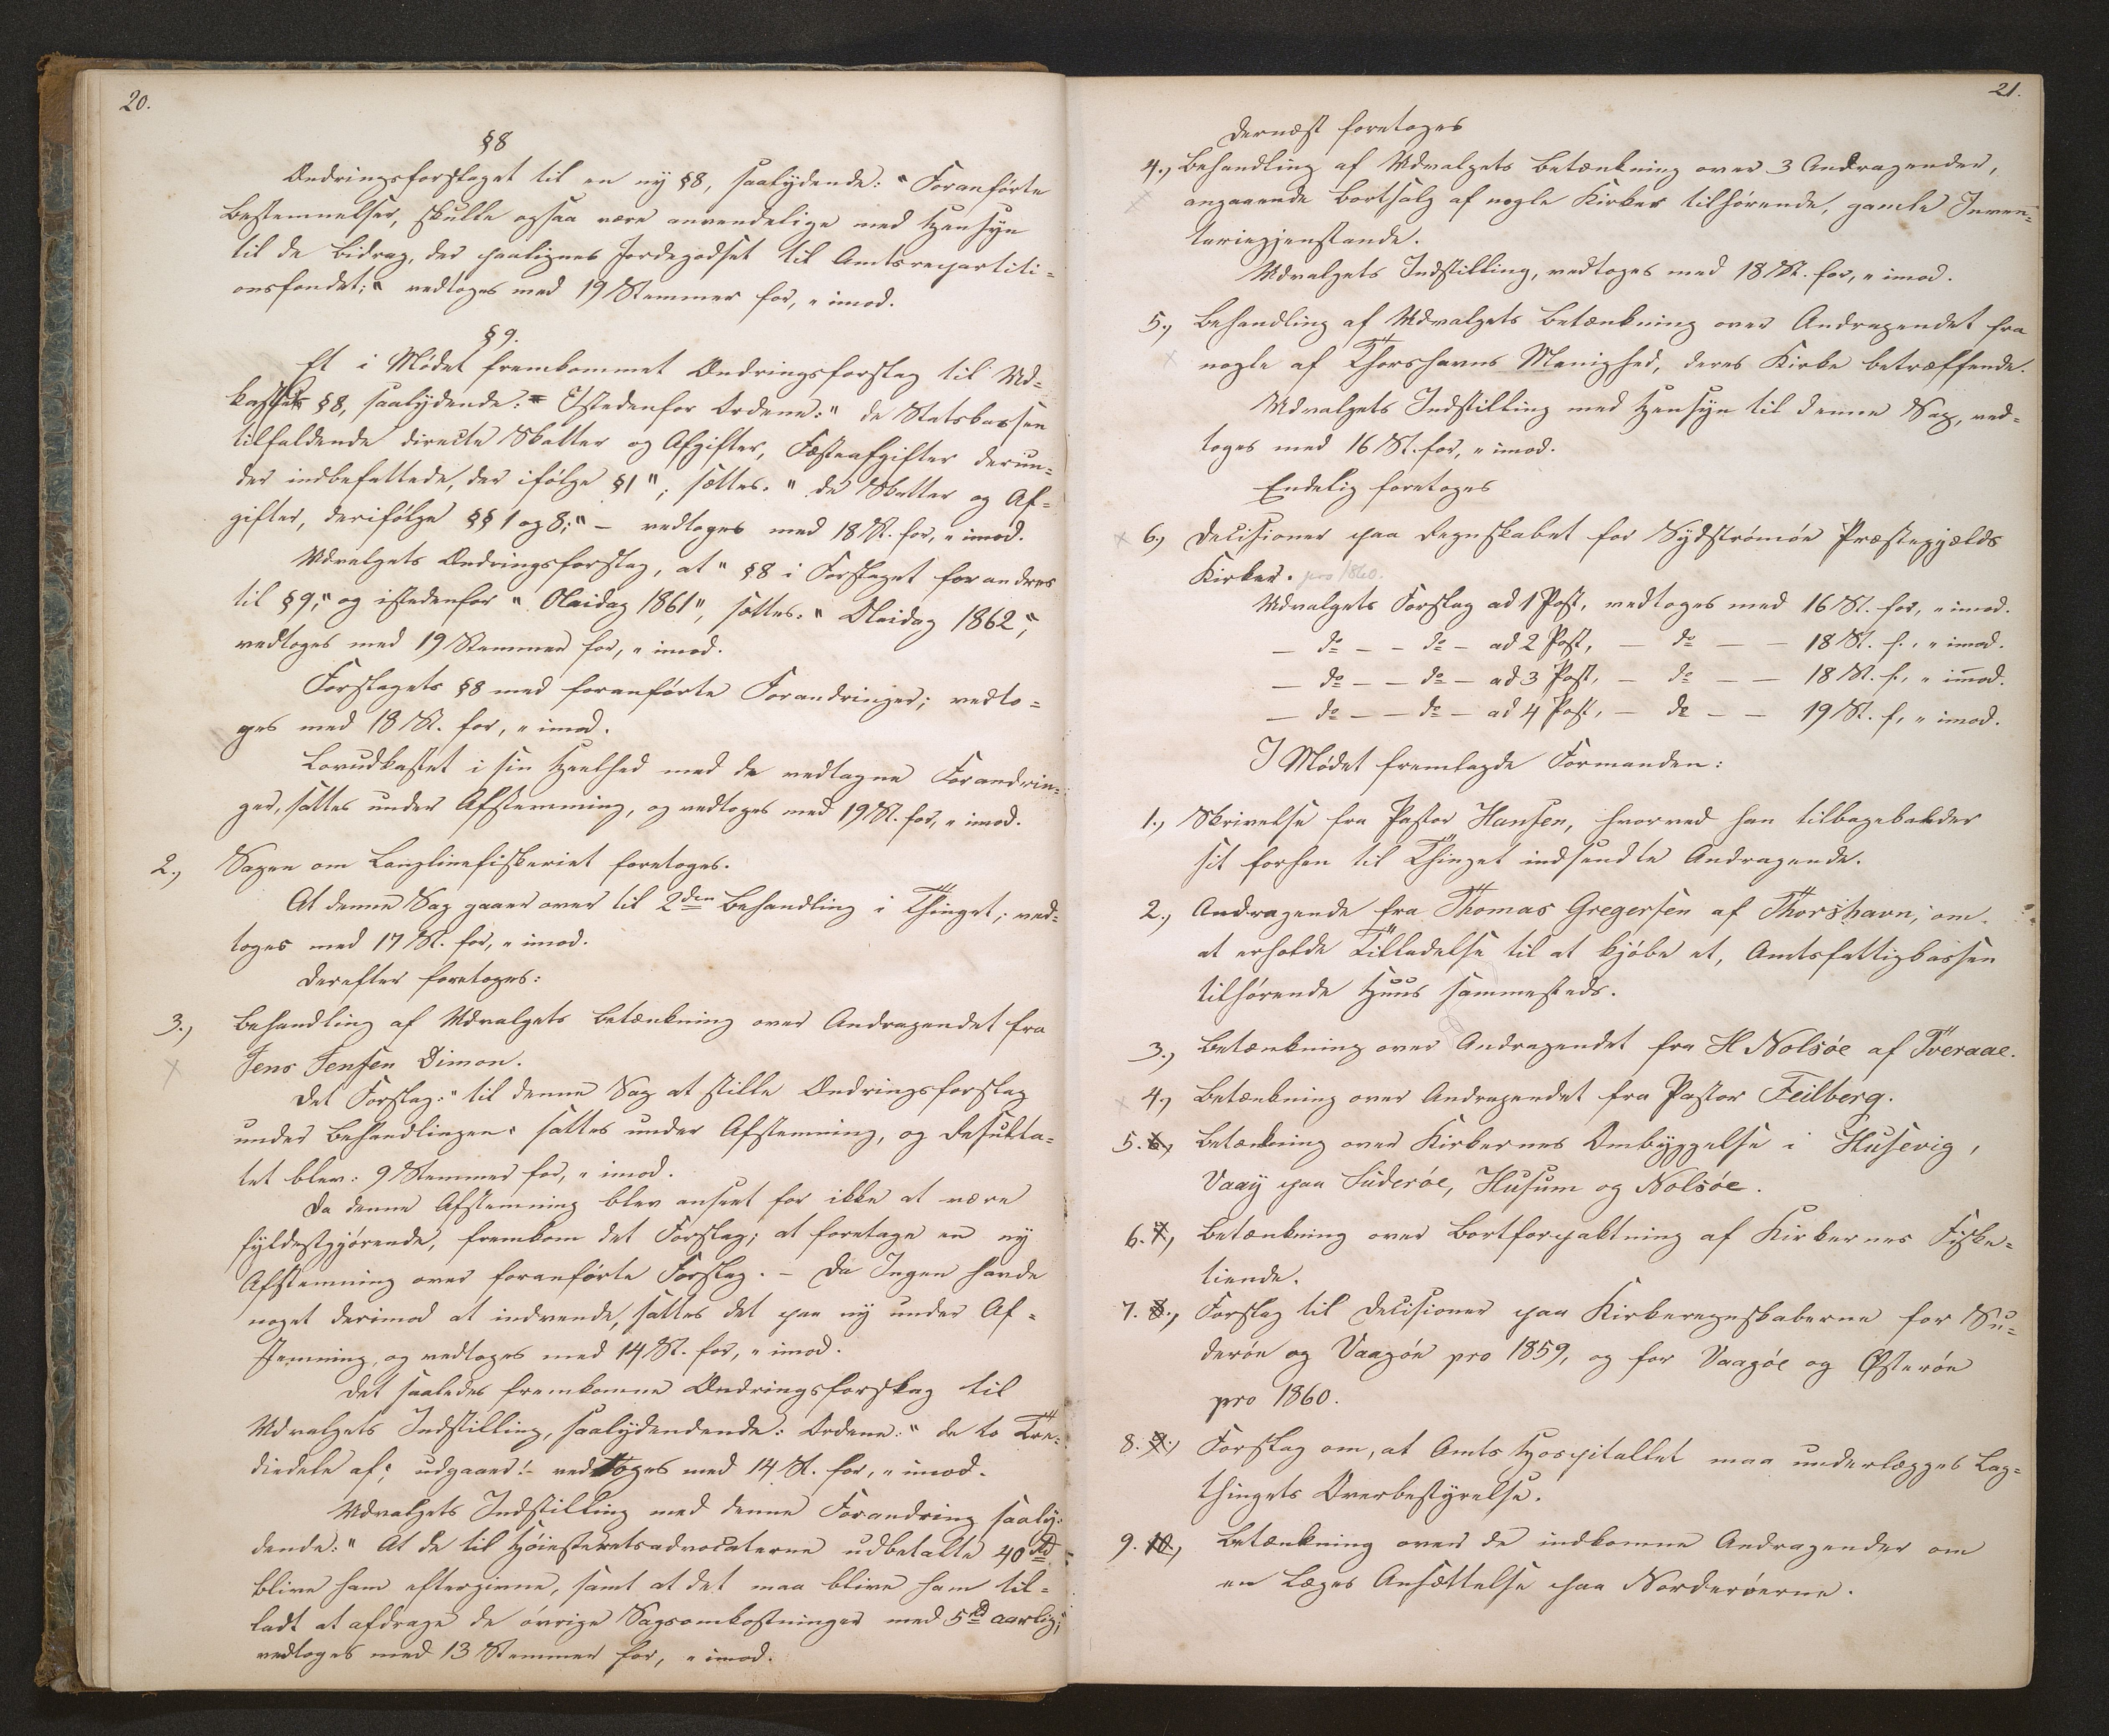 20.
§8
Ændringsforslaget til en ny §8, saalydende: "Foranførte
Bestemmelser, skulle ogsaa være anvendelige med Hensyn
til de Bidrag, der paalignes Jordegodset til Amtsrepartiti-
onsfondet;" vedtoges med 19 Stemmer for, " imod.
§9.
Et i Mødet fremkommet Ændringsforslag til Ud-
kastets §8, saalydende: Istedenfor Ordene: "de Statskassen
tilfaldende directe Skatter og Afgifter, Fæsteafgifter derun-
der indbefattede, der ifølge §1", sættes: "de Skatter og Af-
gifter, der ifølge §§ 1 og 8;" - vedtoges med 18 St. for, " imod.
Udvalgets Ændringsforslag, at "§8 i Forslaget forandres
til §9," og istedenfor "Olaidag 1861", sættes: "Olaidag 1862",
vedtoges med 19 Stemmer for, " imod.
Forslagets §8 med foranførte Forandringer; vedto-
ges med 18 St. for, " imod.
Lovudkastet i sin Heelhed med de vedtagne Forandrin-
ger, sattes under Afstemning, og vedtoges med 19 St. for, " imod.
2., Sagen om Langlinefiskeriet foretoges.
At denne Sag gaaer over til 2den Behandling i Thinget, ved-
toges med 17 St. for, " imod.
Derefter foretoges:
3., Behandling af Udvalgets Betænkning over Andragendet fra
Jens Jensen Dimon.
Det Forslag: "til denne Sag at stille Ændringsforslag
under Behandlingen" sattes under Afstemning, og Resulta-
tet blev: 9 Stemmer for, " imod.
Da denne Afstemning blev anseet for ikke at være
fyldestgjørende, fremkom det Forslag; at foretage en ny
Afstemning over foranførte Forslag. - Da Ingen havde
noget derimod at indvende, sattes det paa ny under Af-
stemning, og vedtoges med 14 St. for, " imod.
Det saaledes fremkomne Ændringsforslag til
Udvalgets Indstilling, saalydendende: Ordene: "de to Tre-
diedele af", udgaaer! - vedtoges med 14 St. for, " imod.
Udvalgets Indstilling med denne Forandring saaly-
dende: "At de til Høiesteretsadvocaterne udbetalte 40 Rd
blive ham eftergivne, samt at det maa blive ham til-
ladt at afdrage de øvrige Sagsomkostninger med 5 Rd aarlig;"
vedtoges med 13 Stemmer for, " imod.
21.
Dernæst foretoges
4., Behandling af Udvalgets Betænkning over 3 Andragender,
angaaende Bortsalg af nogle Kirker tilhørende, gamle Inven-
tariegjenstande.
Udvalgets Indstilling, vedtoges med 18 St. for, " imod.
5., Behandling af Udvalgets Betænkning over Andragendet fra
nogle af Thorshavns Menighed, deres Kirke betræffende.
Udvalgets Indstilling med Hensyn til denne Sag, ved-
toges med 16 St. for, " imod.
Endelig foretoges
6., Decisioner paa Regnskabet for Sydstrømøe Præstegjælds
Kirker. pro 1860.
Udvalgets Forslag ad 1 Post, vedtoges med 16 St. for, " imod.
- do - - do - ad 2 Post, - do - - 18 St. f., " imod.
- do - - do - ad 3 Post, - do - - 18 St. f., " imod.
- do - - do - ad 4 Post, - do - - 19 St. f, " imod.
I Mødet fremlagde Formanden:
1., Skrivelse fra Pastor Hansen, hvorved han tilbagekalder
sit forhen til Thinget indsendte Andragende.
2., Andragende fra Thomas Gregersen af Thorshavn, om
at erholde Tilladelse til at kjøbe et, Amtsfattigkassen
tilhørende Huus sammesteds.
3., Betænkning over Andragendet fra H Nolsøe af Tveraae.
4., Betænkning over Andragendet fra Pastor Feilberg.
5. 6., Betænkning over Kirkernes Ombyggelse i Husevig,
Vaay paa Suderøe, Husum og Nolsøe.
6. 7., Betænkning over Bortforpaktning af Kirkernes Fiske-
tiende.
7. 8., Forslag til Decisioner paa Kirkeregnskaberne for Su-
derøe og Vaagøe pro 1859, og for Vaagøe og Østerøe
pro 1860.
8. 9., Forslag om, at Amts Hospitallet maa underlægges Lag-
thingets Overbestyrelse.
9. 10., Betænkning over de indkomne Andragender om
en Læges Ansættelse paa Norderøerne.